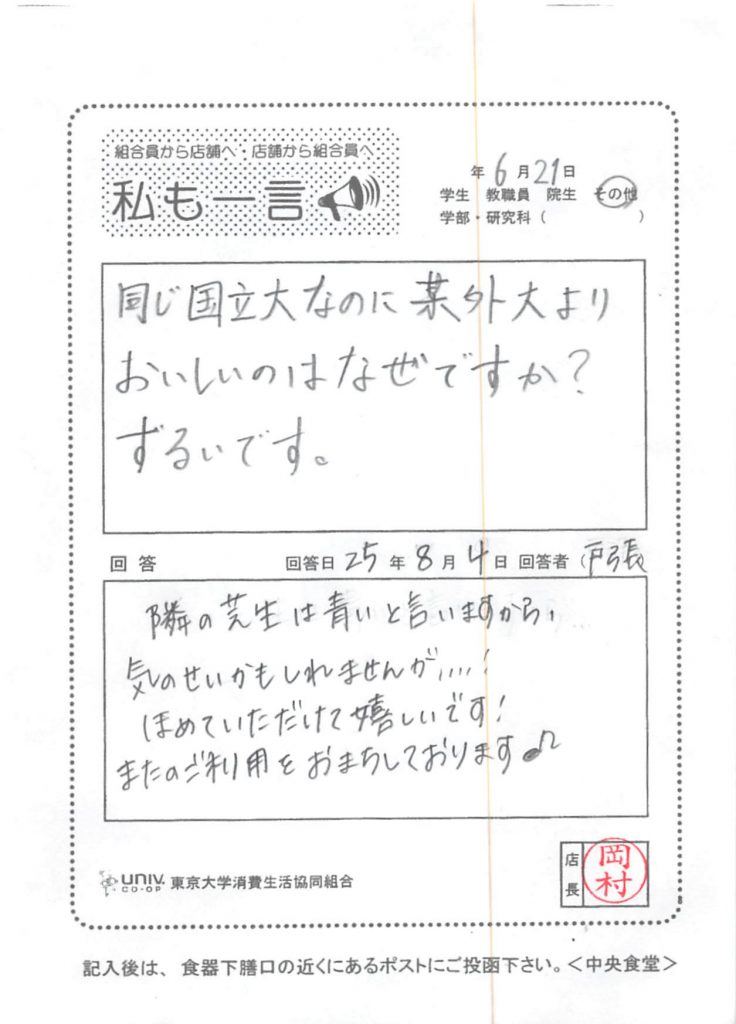 組合員から店舗へ・店舗から組合員へ
私も一言
年 6 月 21 日
学生 教職員 院生 その他
学部・研究科 ( )
同じ国立大なのに某外大より
おいしいのはなぜですか?
ずるいです。
回答 回答日 25 年 8 月 4 日 回答者 (戸張
隣の芝生は青いと言いますから、
気のせいかもしれませんが....!
ほめていただけて嬉しいです!
またのご利用をおまちしております♪
店長 岡村
UNIV. CO-OP 東京大学消費生活協同組合
記入後は、食器下膳口の近くにあるポストにご投函下さい。<中央食堂>